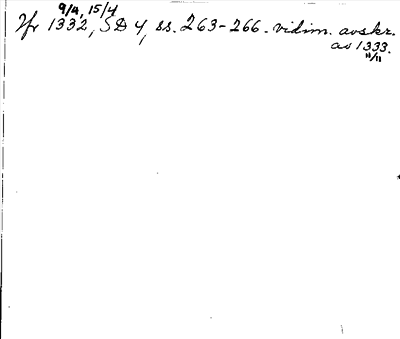 9/4, 15/4
Jfr 1332, SD 4, ss. 263-266. vidim. avskr.
av 1333.
11/11